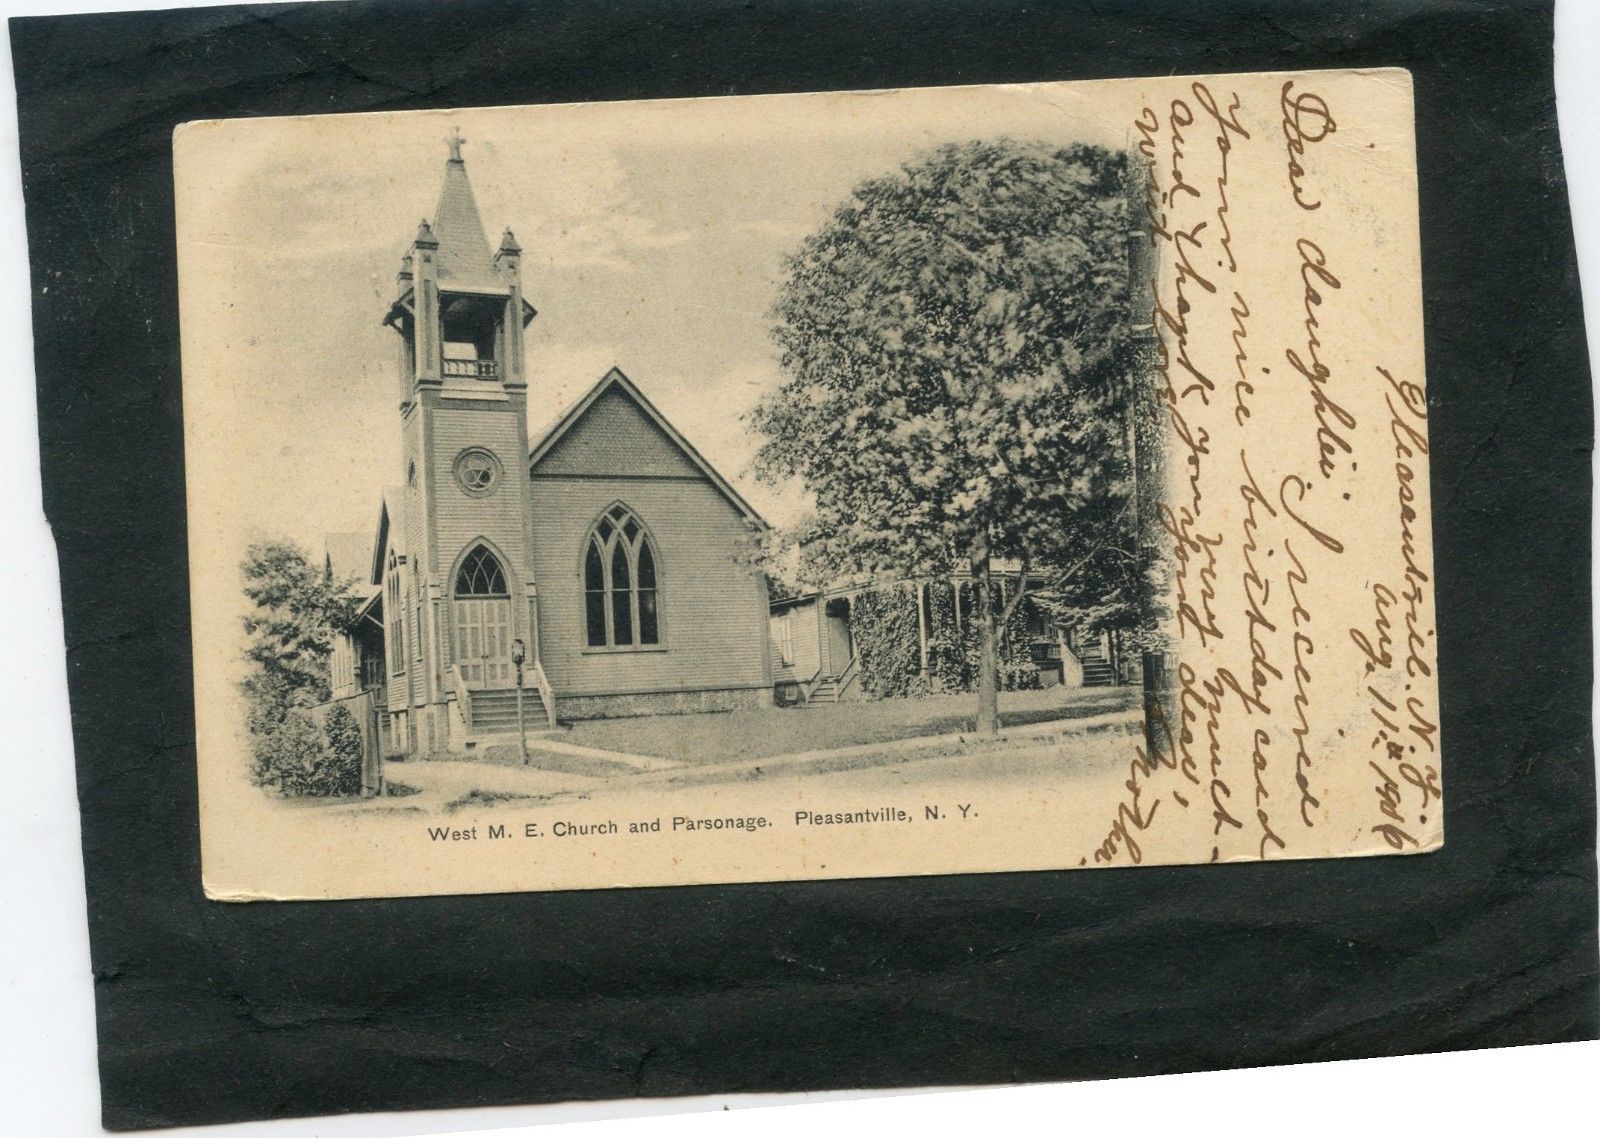 West M. E. Church and Parsonage. Pleasantville, N. Y.
Pleasantvile. N. Y.
Aug. 11.th 1906
Dear daughter. I received
Your nice birthday card
and thank you very much.
With love your dear,
Mother.